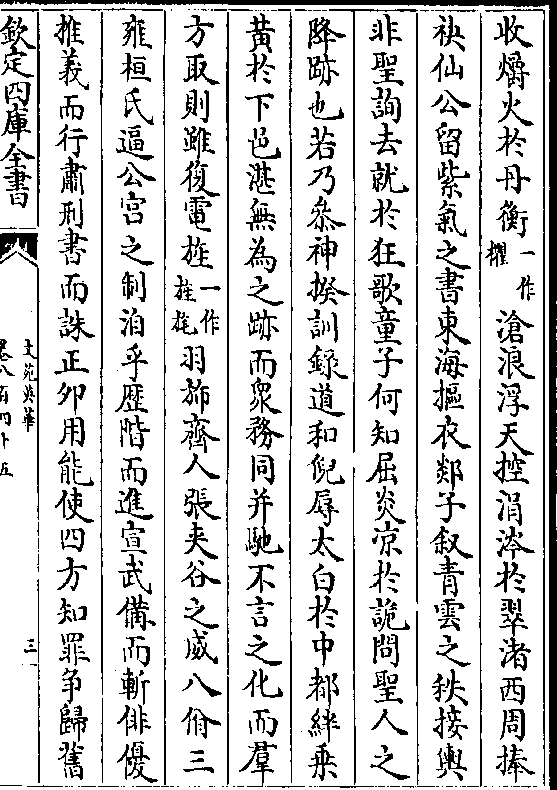 收爝火於丹衡一作櫂滄浪浮天控涓涔於翠渚西周捧
袂仙公留紫氣之書東海摳衣郯子叙青雲之秩接輿
非聖詢去就於狂歌童子何知屈炎凉於詭問聖人之
降跡也若乃叅神揆訓録道和倪辱太白於中都絆乗
黄於下邑湛無為之跡而衆務同并馳不言之化而羣
方取則雖復電旌一作旌旄羽斾齊人張夾谷之威八佾三
雍桓氏逼公宫之制洎乎歴階而進宣武備而斬俳優
推義而行肅刑書而誅正夘用能使四方知罪争歸舊
欽定四庫全書
文苑英華
卷八百四十五
三